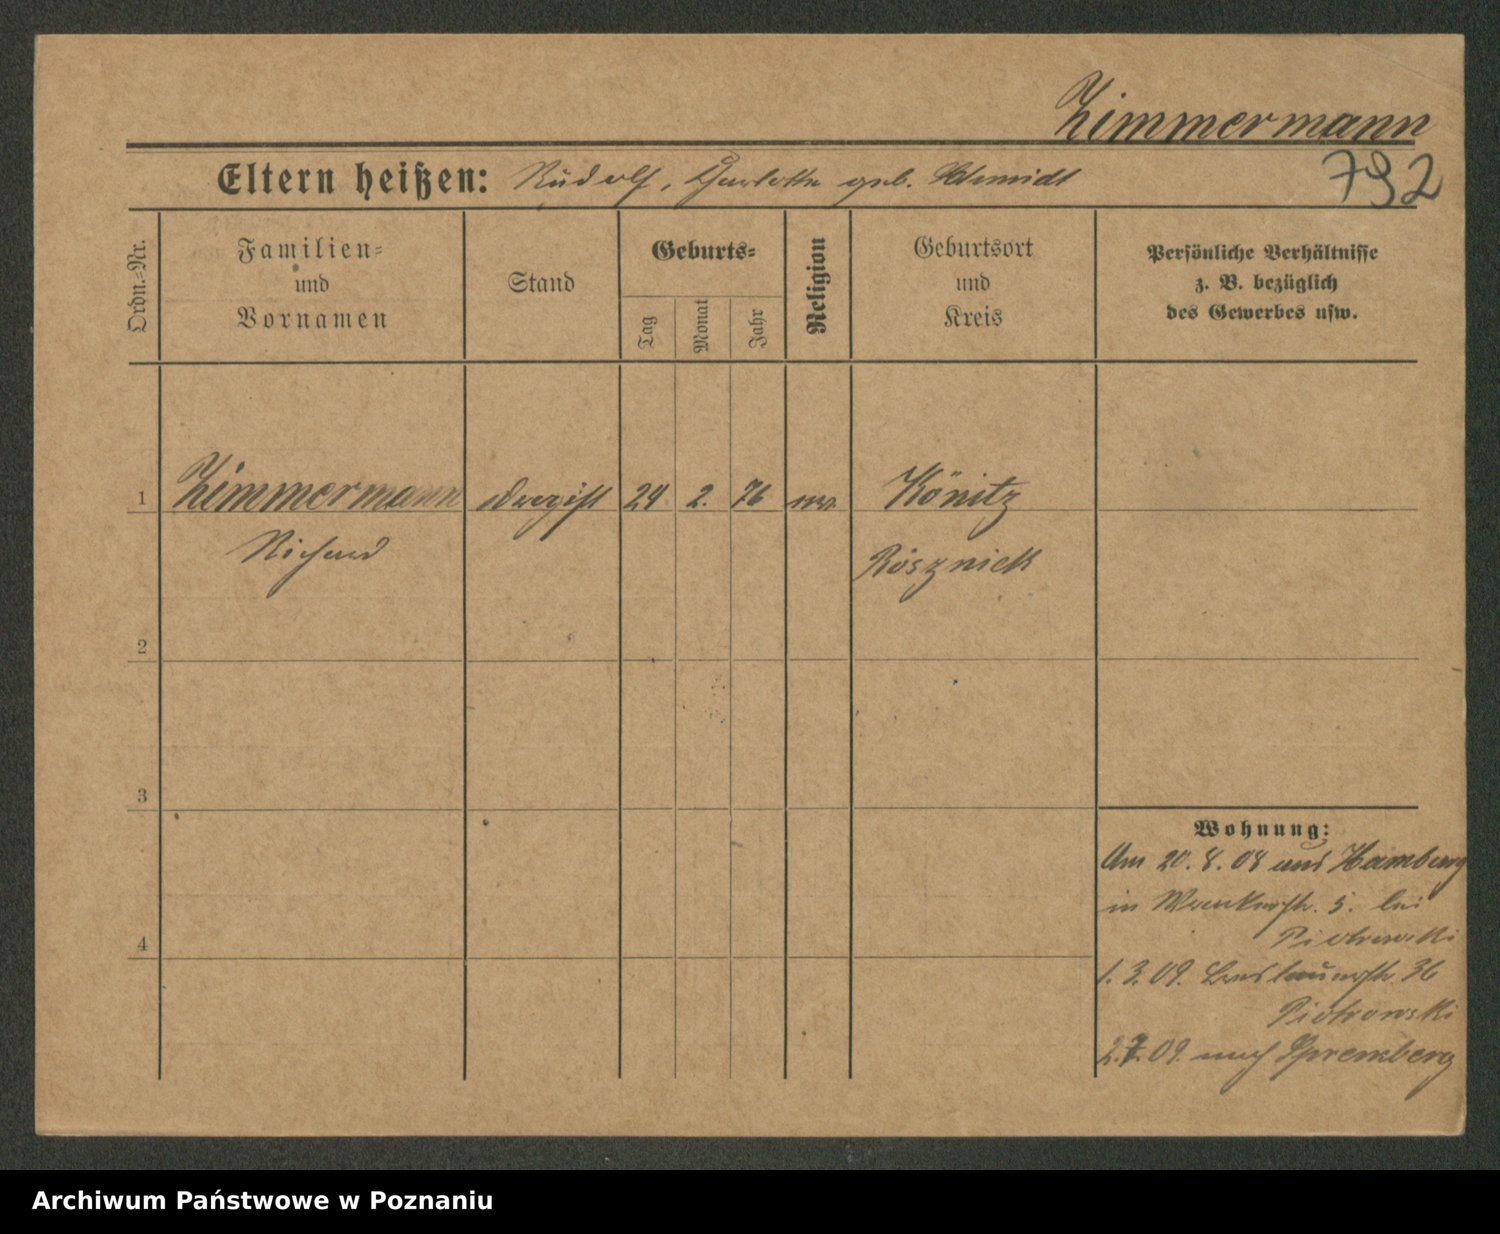 Zimmermann
792
Eltern heißen: Rudolf, Charlotte geb. Schmidt
Ordn.-Nr.
Familien-
und
Vornamen
Stand
Geburts-
Tag
Monat
Jahr
Religion
Geburtsort
und
Kreis
Persönliche Verhältnisse
z. B. bezüglich
des Gewerbes usw.
1 Zimmermann Drogist 24 2. 76 ev. Könitz
Richard
2
3
4
Wohnung:
Am 20. 8. 08 aus Hamburg
in 5. bei
Piotrowski
1. 3. 09. 36
Piotrowski
09. nach Spremberg
Archiwum Państwowe w Poznaniu